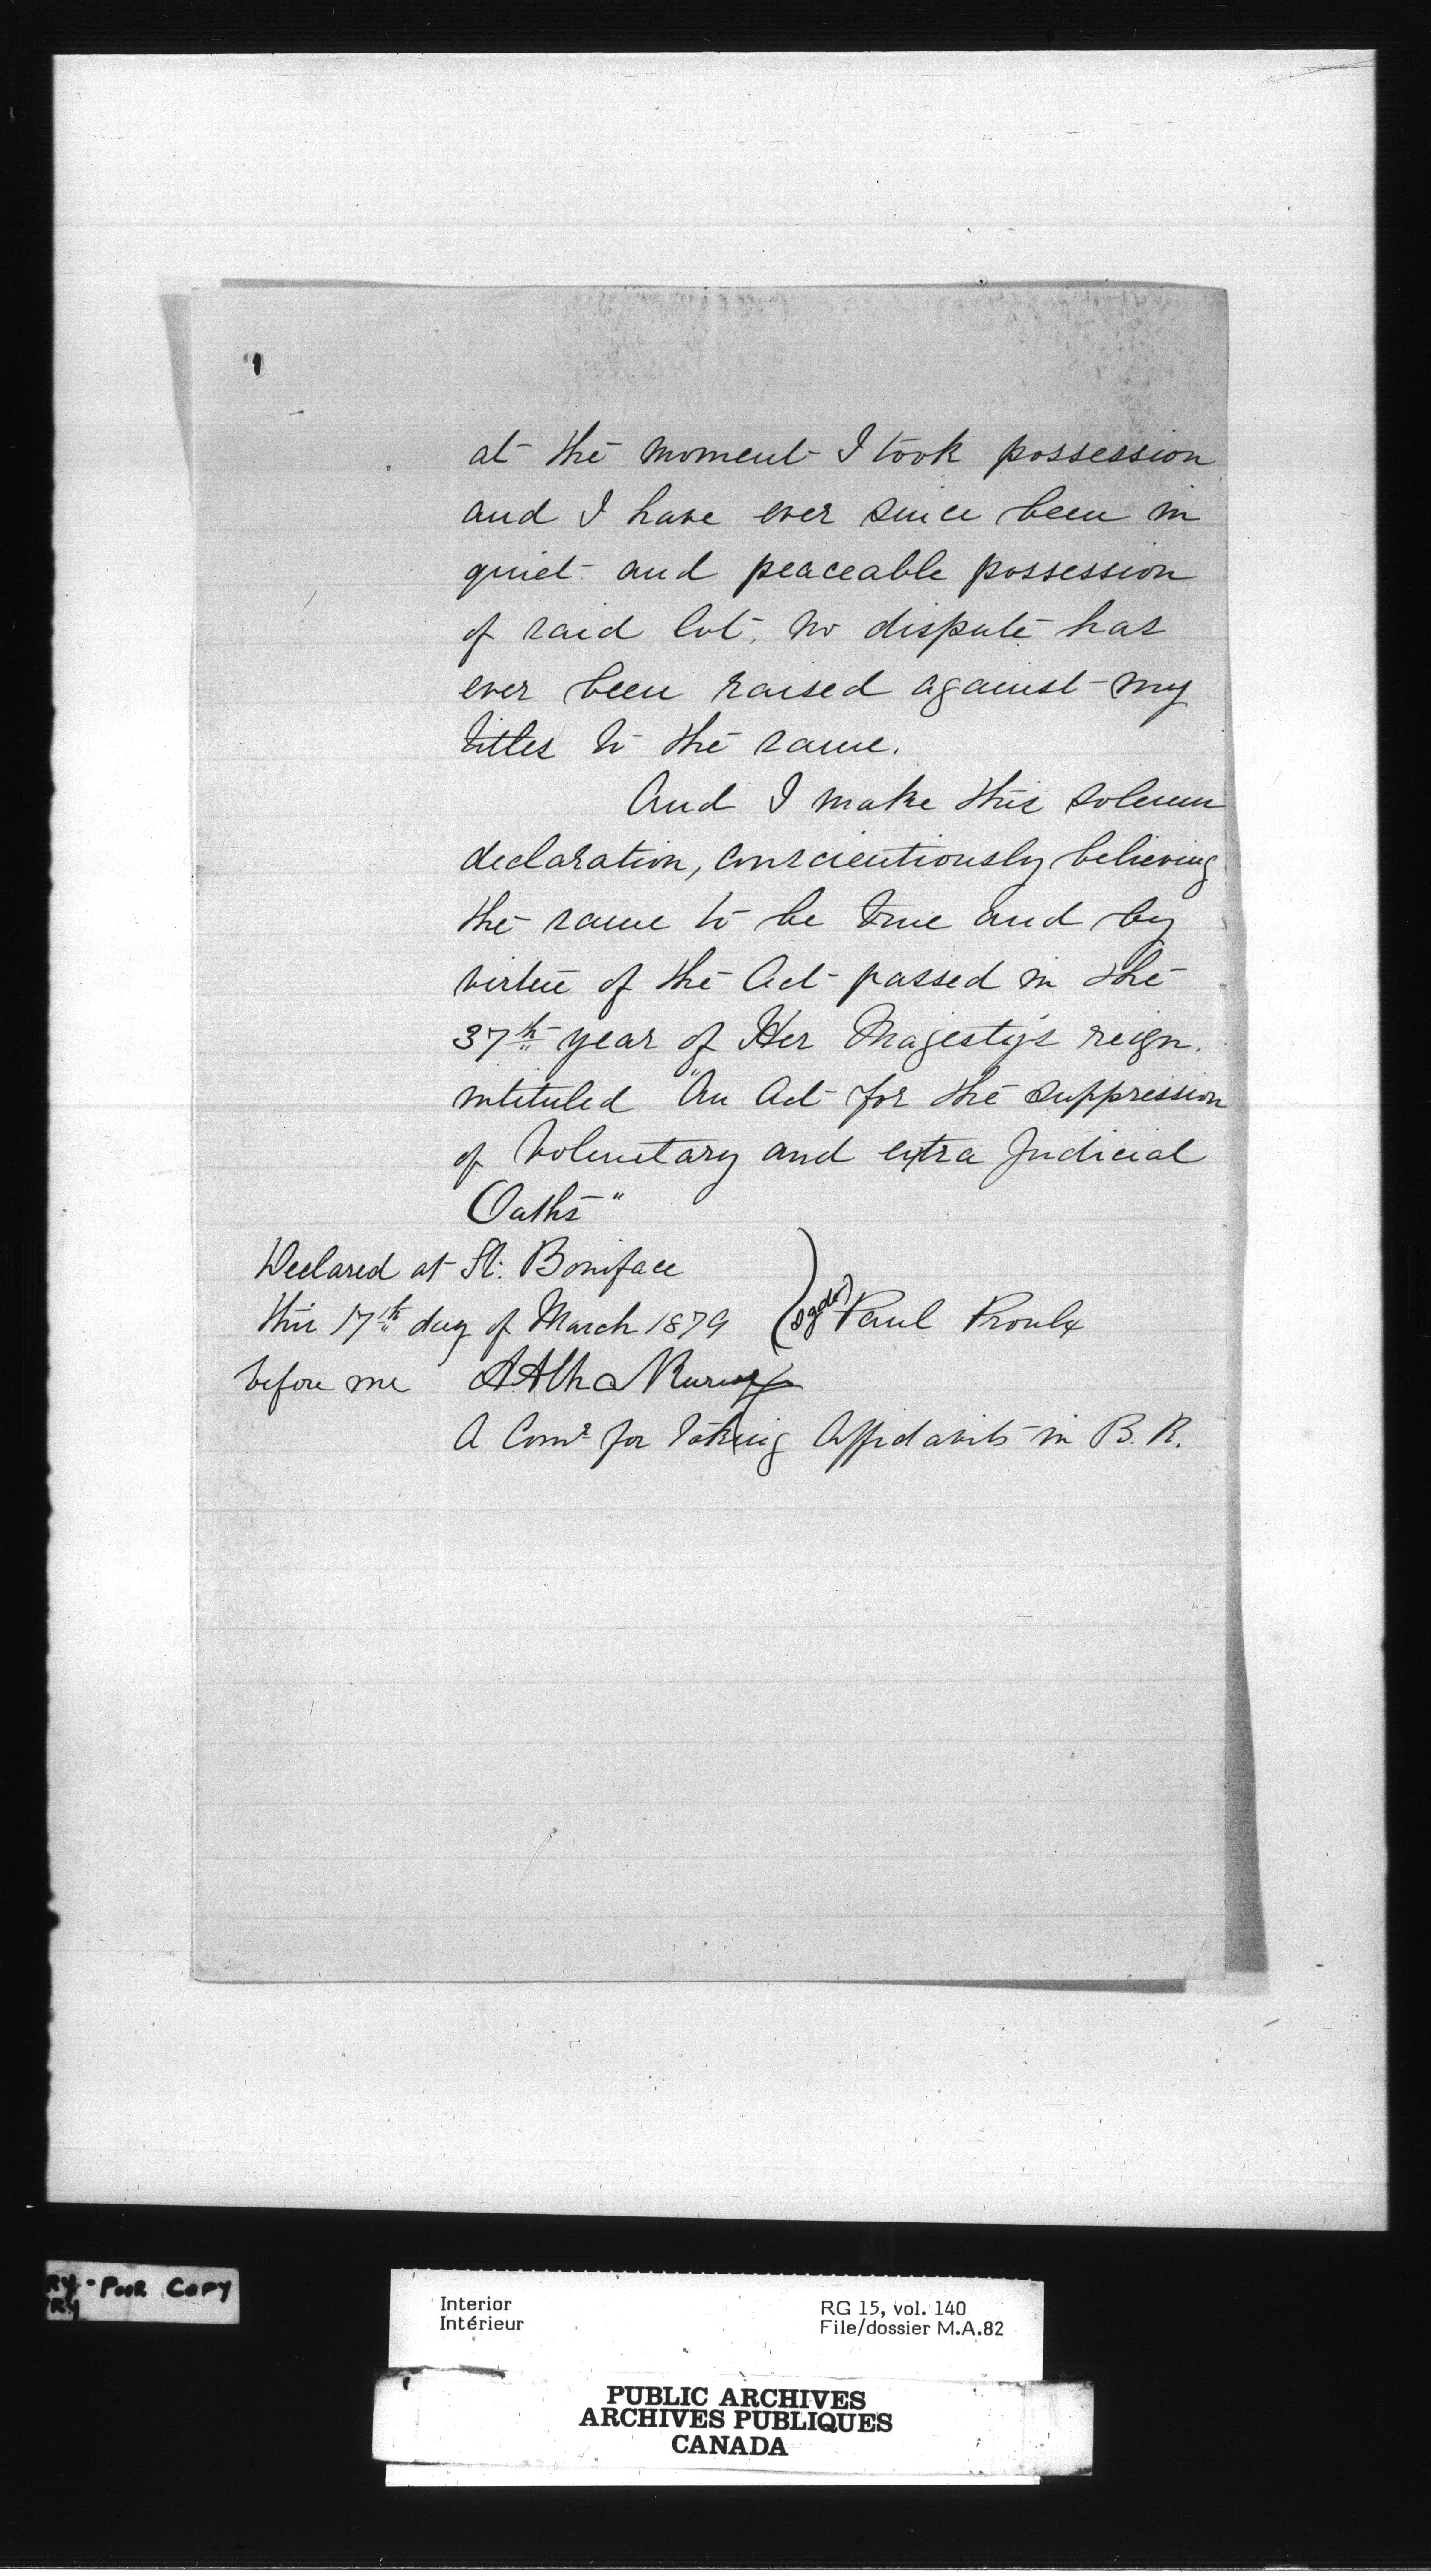 at the moment I took possession
and I have ever since been in
quiet and peaceable possession
of said lot, no dispute has
ever been raised against my
titles to the same.
And I make this solemn
declaration, conscientiously believing
the same to be true and by
virtue of the Act passed in the
37th year of Her Majesty's reign.
intituled "An Act for the suppression
of Voluntary and extra Judicial
Oaths"
Declared at St. Boniface
this 17th day of March 1879 (sgd) Paul Proulx
before me
A Comr for taking Affidavits in B. R.
RY - POOR COPY
RY
Interior
Intérieur
RG 15, vol. 140
File/dossier M.A.82
PUBLIC ARCHIVES
ARCHIVES PUBLIQUES
CANADA